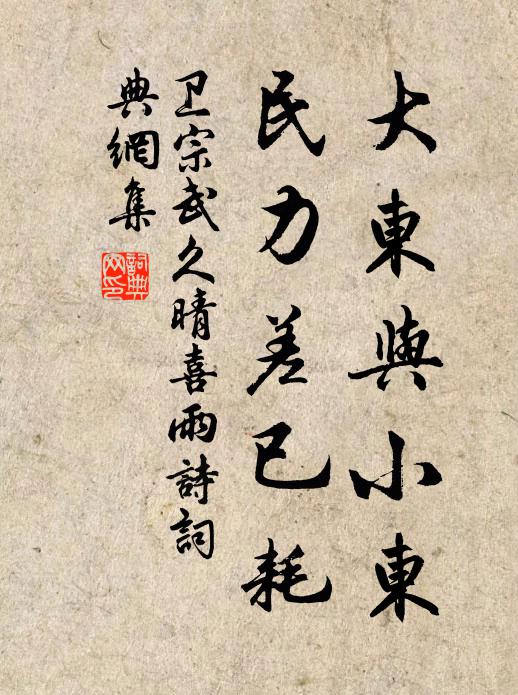 大東與小東
民力差已耗
卫宗武久晴喜雨詩詞
典網集
詞典
网印